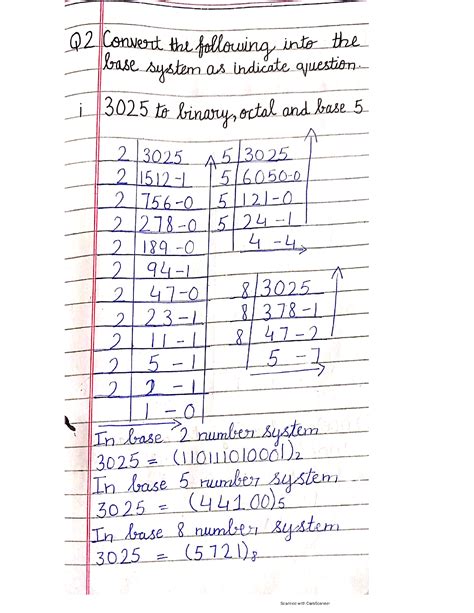 Q2 Convert the following into the
base system as indicate question.
i 3025 to binary, octal and base 5
2 3025
2 1512-1
2 756-0
2 278-0
2 189-0
2 94-1
2 47-0
2 23-1
2 11-1
2 5-1
2 2-1
1-0
5 3025
5 6050-0
5 121-0
5 24-1
4-4
8 3025
8 378-1
8 47-2
5-7
In base 2 number system
3025 = (110111010001)2
In base 5 number system
3025 = (44100)5
In base 8 number system
3025 = (5721)8
Scanned with CamScanner